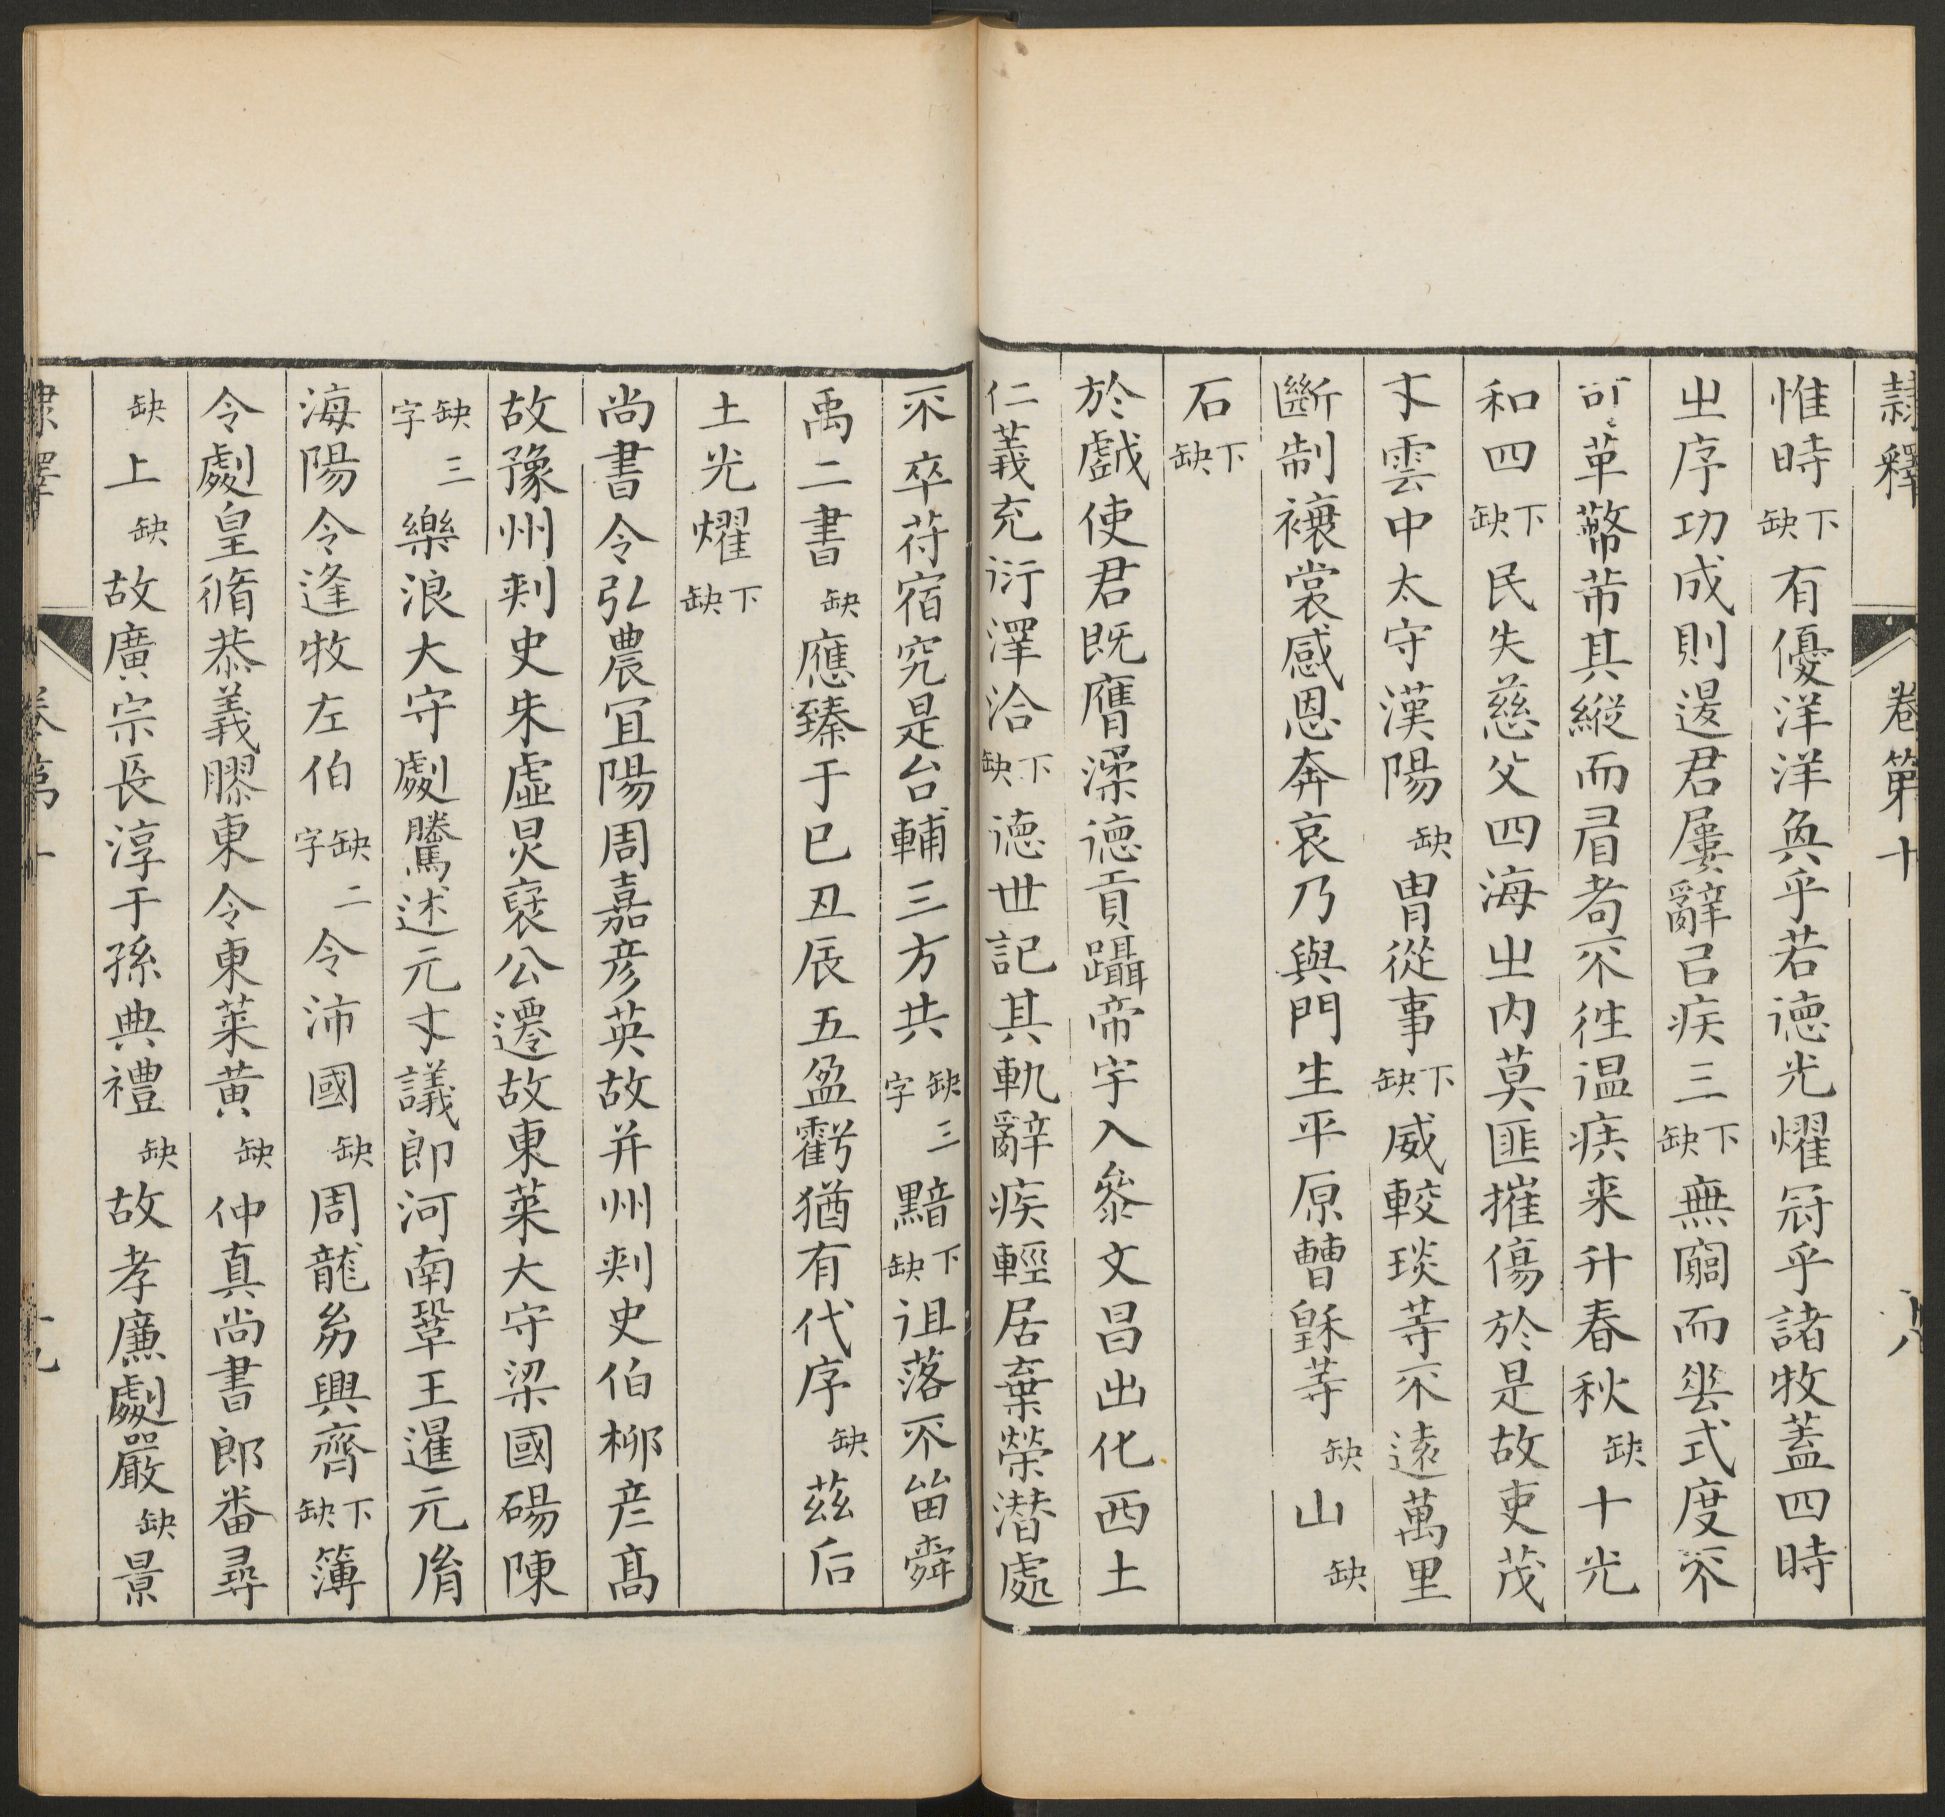 隷釋 卷第十 十八
惟時下缺有優洋洋奐乎若德光燿冠乎諸牧蓋四時
㞢序功成則退君屢辭㠯疾三下缺無𨵿而㘴式度不
革幣芾其縱而眉耇不徃温疾来升春秋缺十光
和四下缺民失慈父四海㞢内莫匪摧傷於是故吏茂
才雲中太守漢陽缺胄從事下缺威較琰䒭不遠萬里
斷制禳裳感恩奔哀乃與門生平原曹䤈䒭缺山缺
石下缺
於戲使君既膺渘德貢躡帝宇入叅文昌出化西土
仁義充衍澤洽下缺德世記其軌辭疾輕居棄榮潜處
不卒苻宿究是台輔三方共缺三字黯下缺徂落不畄舜
禹二書缺應臻于巳丑辰五盈虧猶有代序缺茲后
土光燿下缺
尚書令弘農冝陽周嘉彦英故并州刾史伯桺彦高
故豫州刾史朱虛炅裦公遷故東萊大守梁國碭陳
缺三字樂浪大守劇騰述元才議郎河南鞏王暹元脩
海陽令逢牧左伯缺二字令沛國缺周龍㓜興齊下缺簿
令劇皇脩恭義膠東令東萊黄缺仲真尚書郎番尋
缺上缺故廣宗長淳于孫典禮缺故孝廉劇嚴缺景
隷釋 卷第十 十九